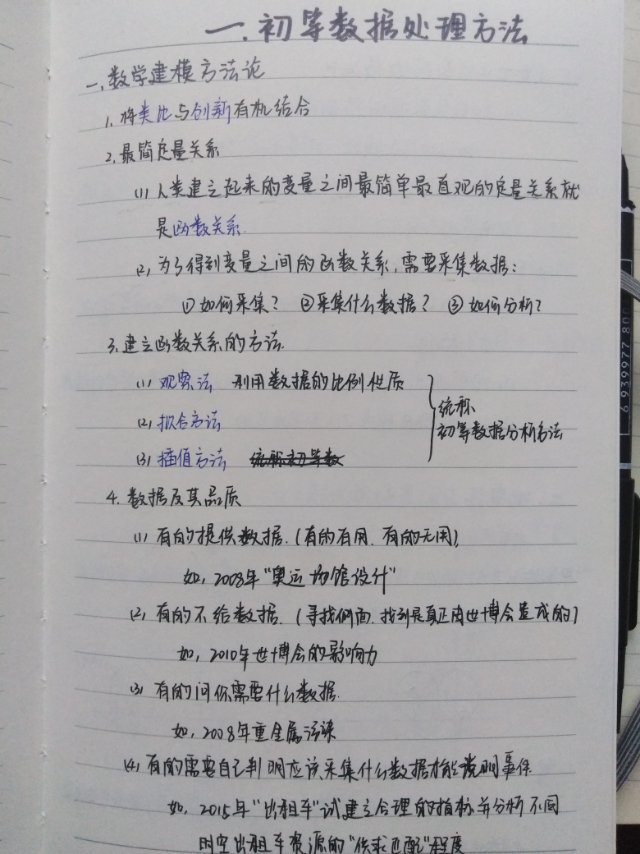 一.初等数据处理方法
一、数学建模方法论
1.将类比与创新有机结合
2.最简定量关系
(1)人类建立起来的变量之间最简单最直观的定量关系就
是函数关系.
(2)为了得到变量之间的函数关系,需要采集数据:
①如何采集? ②采集什么数据? ③如何分析?
3.建立函数关系的方法.
(1)观察法 利用数据的比例性质
(2)拟合方法
(3)插值方法 统称初等数
统称
初等数据分析方法
4.数据及其品质
(1)有的提供数据.(有的有用.有的无用)
如,2008年"奥运场馆设计"
(2)有的不给数据.(寻找侧面.找到是真正由世博会造成的)
如,2010年世博会的影响力
(3)有的问你需要什么数据.
如,2008年重金属污染
(4)有的需要自己判明应该采集什么数据才能说明事体
如,2015年"出租车"试建立合理的指标并分析不同
时空出租车资源的"供求匹配"程度
6 939977 800